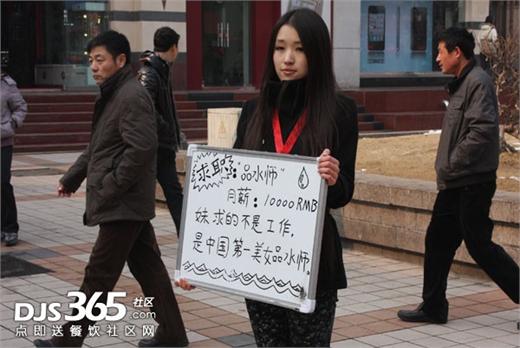 求职:"品水师"
月薪:10000RMB
妹求的不是工作,
是中国第一美女品水师。
DJS365社区
点即送餐饮社区网